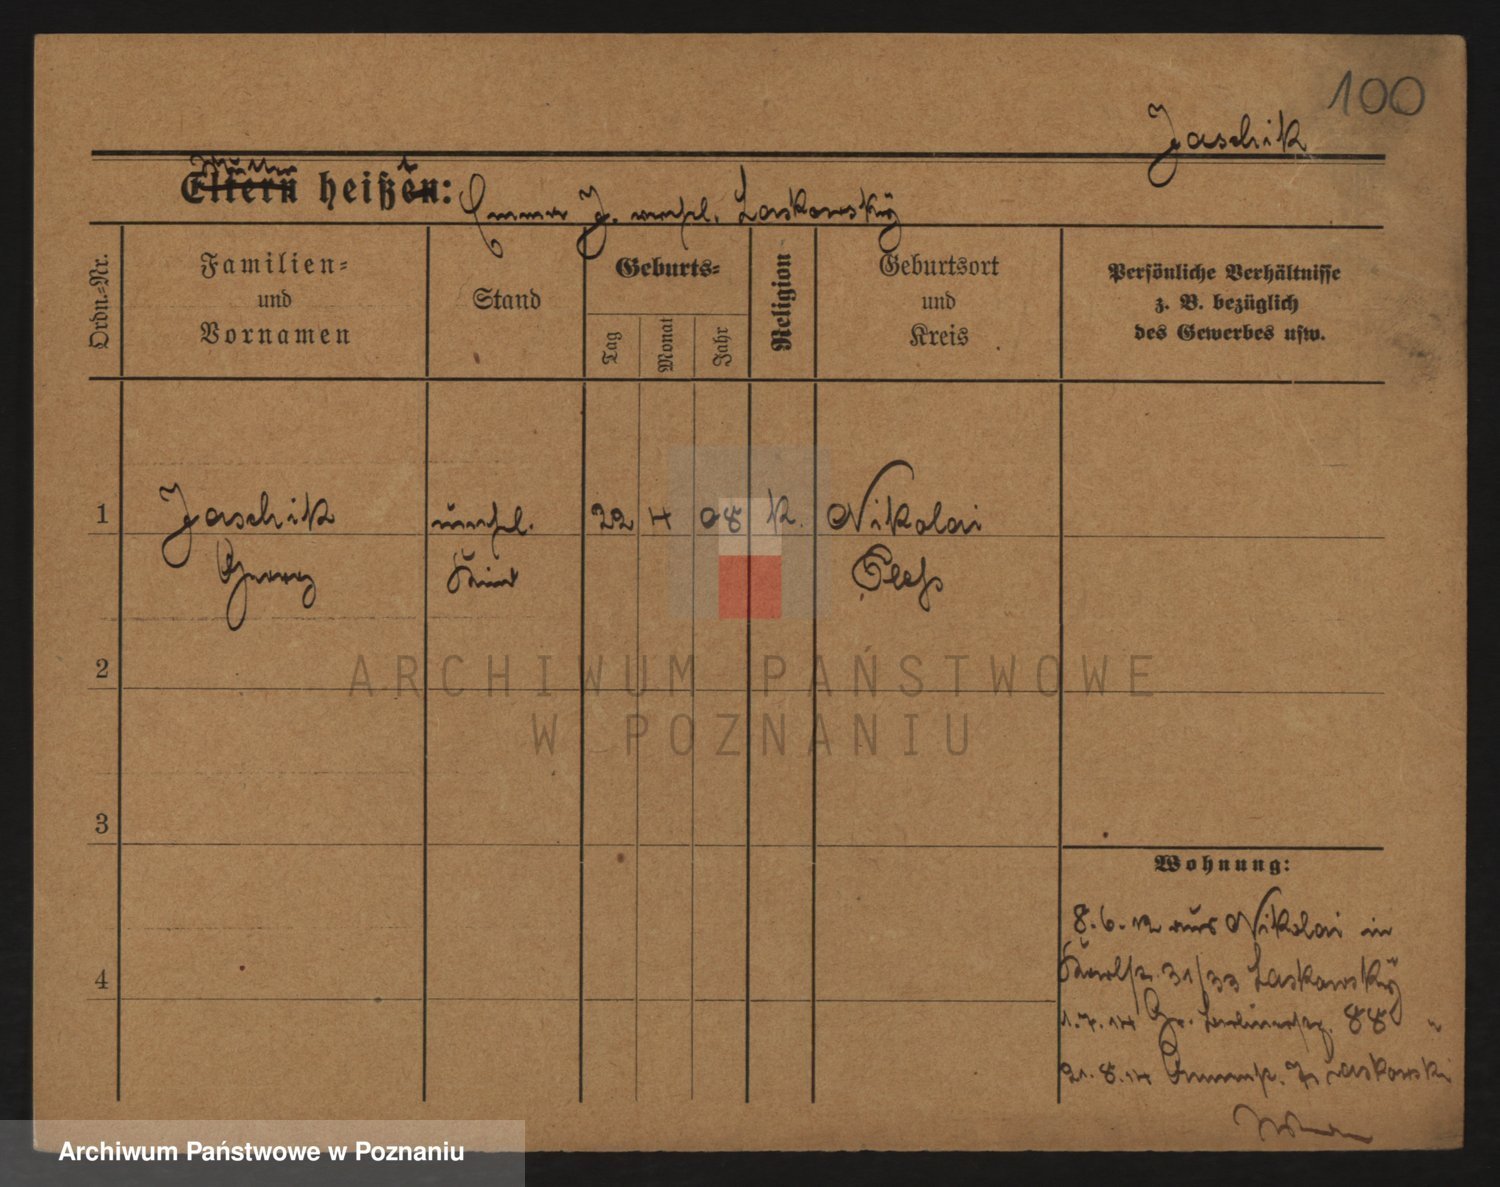 100
Jaschik
Mutter
Eltern heißen: Emma J. verehl. Laskowsky
Ordn.-Nr.
Familien-
und
Vornamen
Stand
Geburts-
Tag
Monat
Jahr
Religion
Geburtsort
und
Kreis
Persönliche Verhältnisse
z. B. bezüglich
des Gewerbes usw.
1
Jaschik
Georg
unehl.
Kind
22 4 08 K.
Nikolai
Pleß
2
ARCHIWUM PAŃSTWOWE
W POZNANIU
3
4
Wohnung:
8.6.12 aus Nikolai in
Karlstr. 31/33 Laskowsky
1.7.14 Gr. Berlinerstr. 88 "
21.8.14 Laskowski
Archiwum Państwowe w Poznaniu